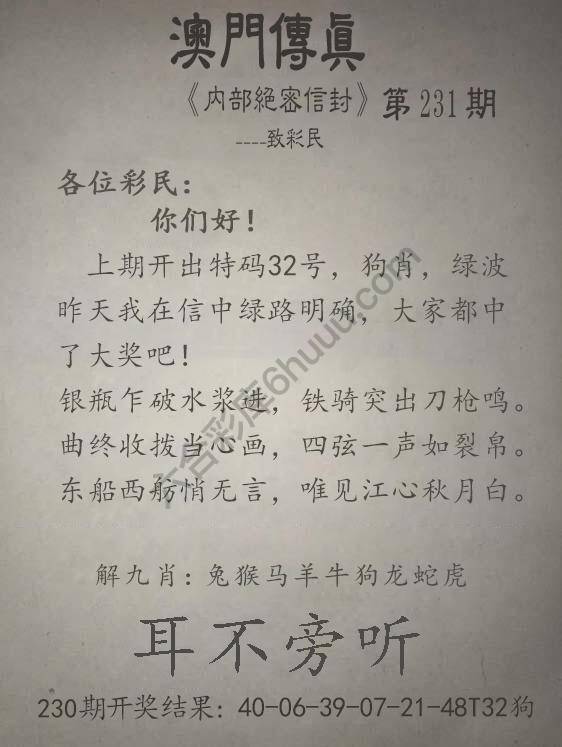 澳門傳眞
《内部絕密信封》第231期
----致彩民
各位彩民：
你们好！
上期开出特码32号，狗肖，绿波
昨天我在信中绿路明确，大家都中
了大奖吧！
银瓶乍破水浆进，铁骑突出刀枪鸣。
曲终收拨当心画，四弦一声如裂帛。
东船西舫悄无言，唯见江心秋月白。
六合彩库6huuu.com
解九肖：兔猴马羊牛狗龙蛇虎
耳不旁听
230期开奖结果：40-06-39-07-21-48T32狗